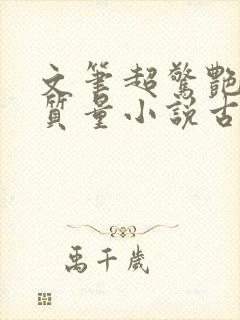 文筆超驚艷
質量小說古
禹千歲